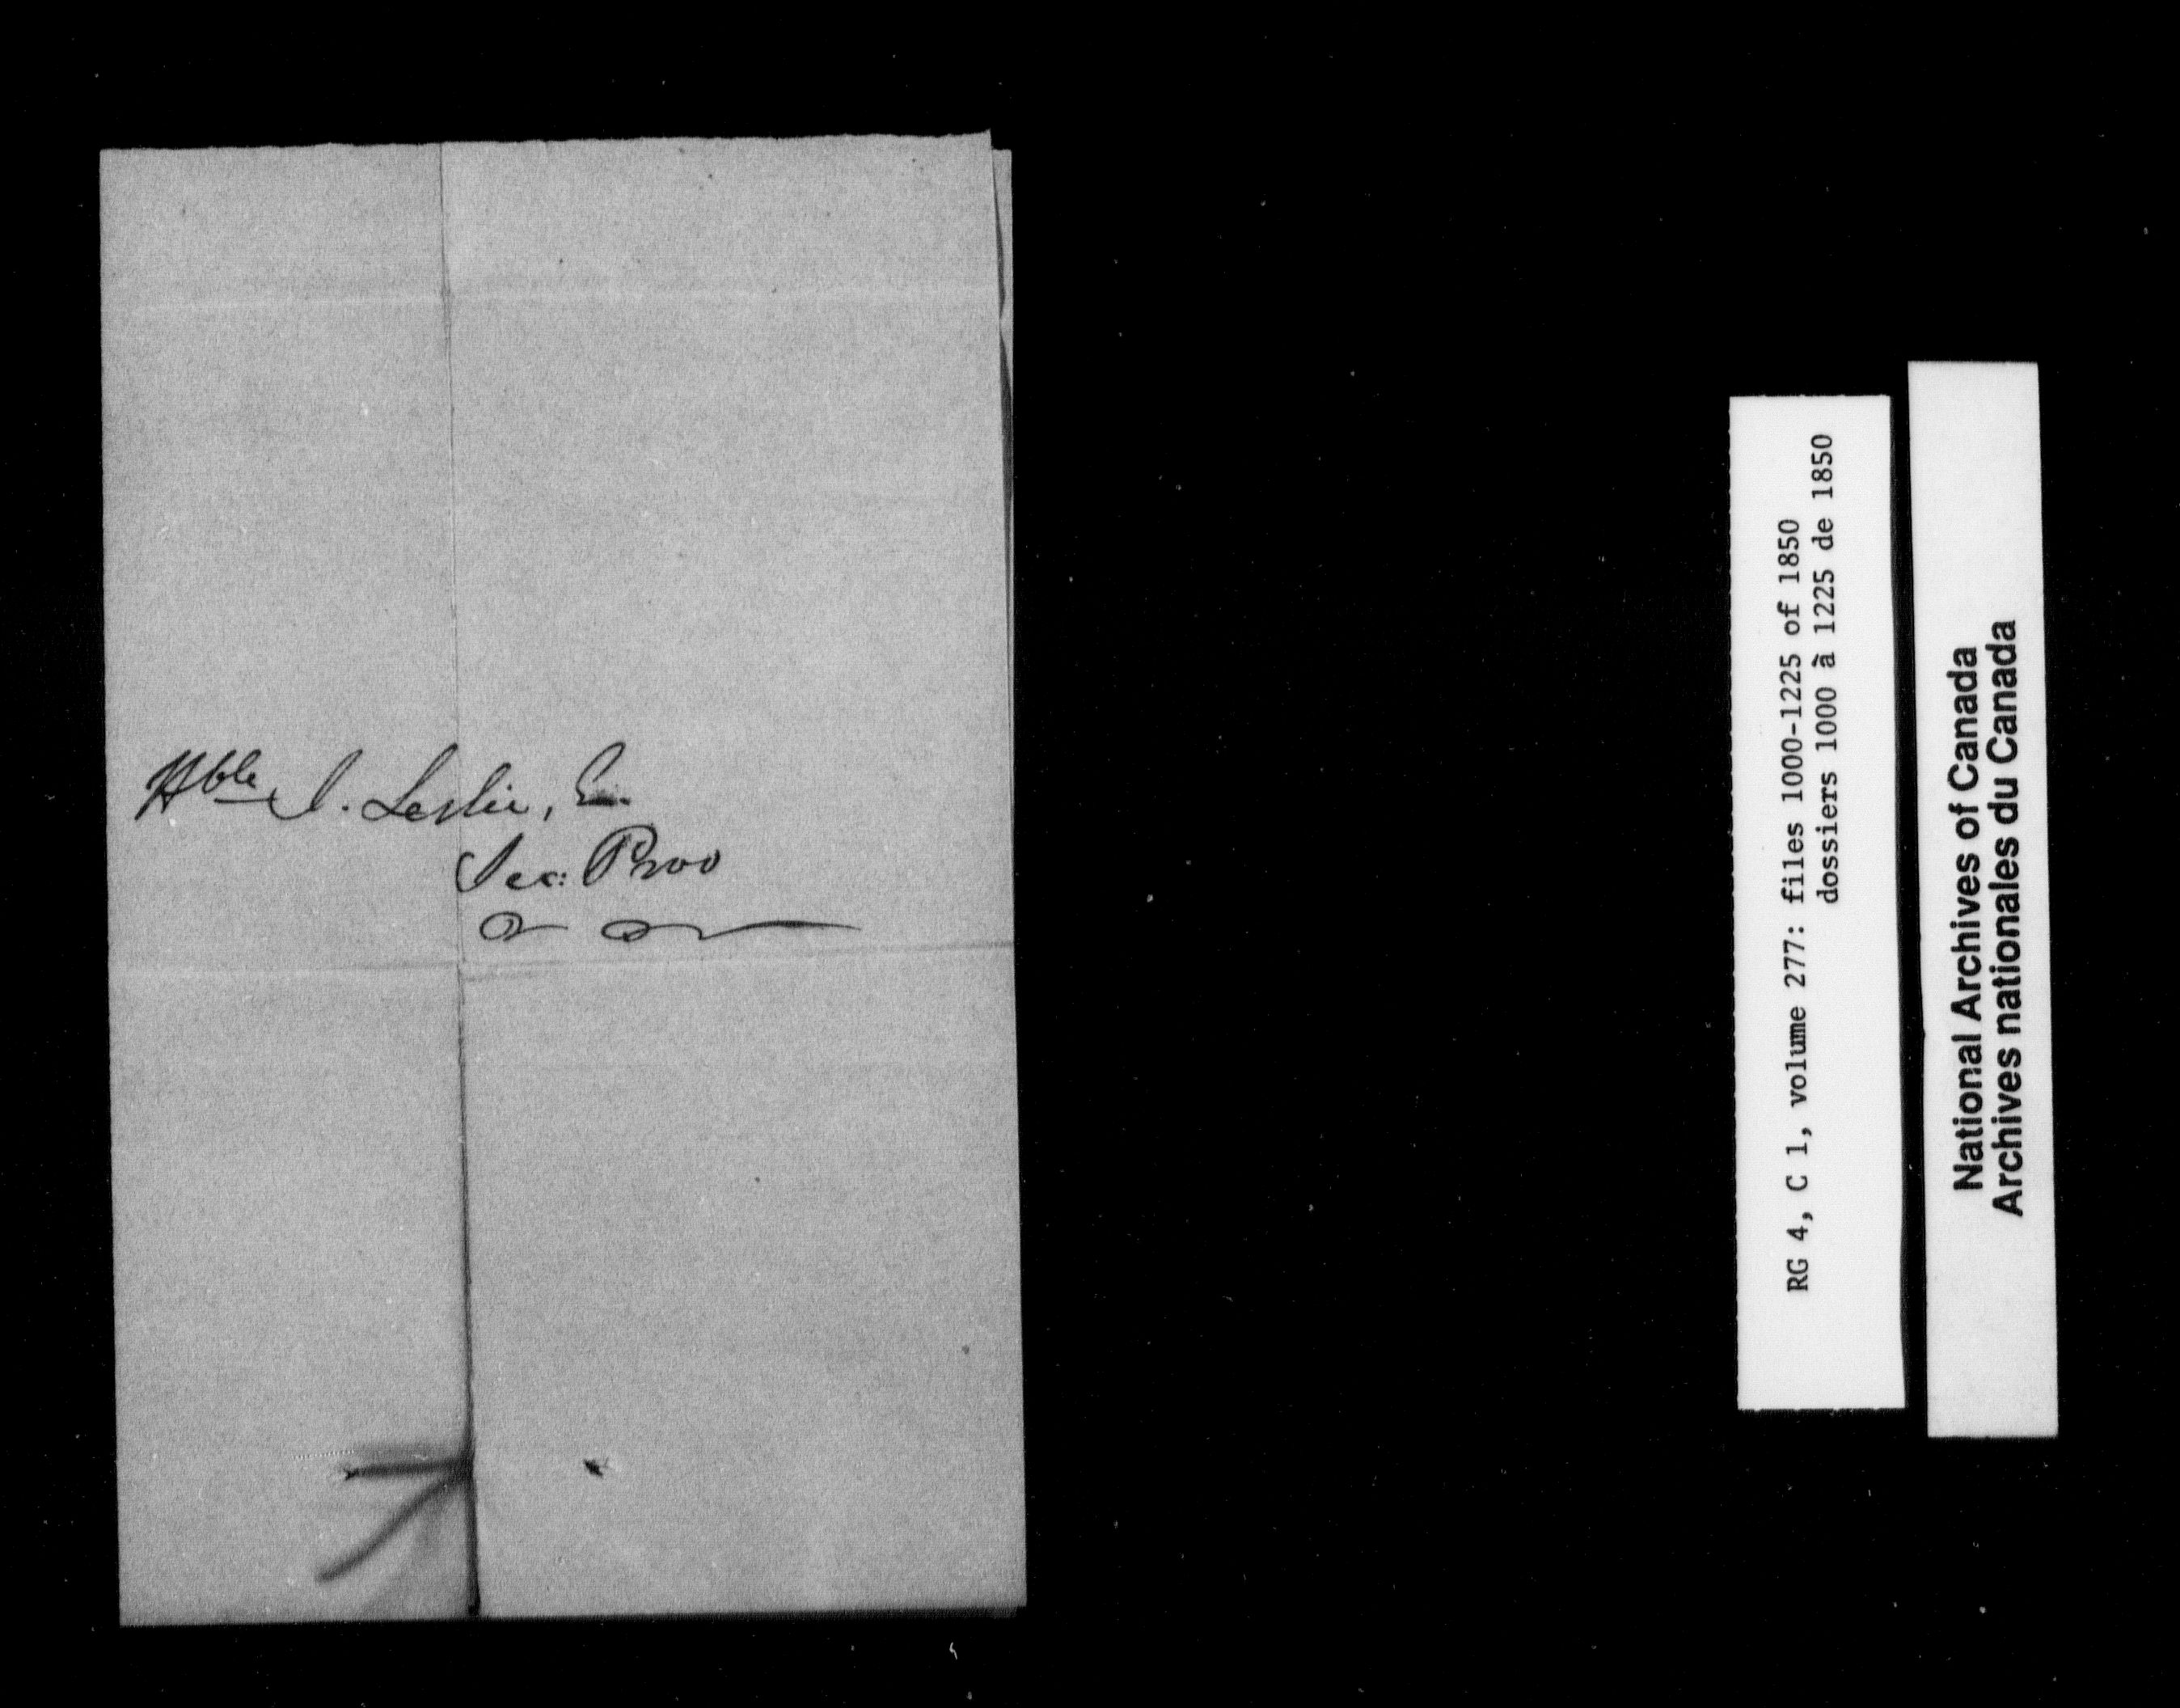 Hble J. Leslie,
Sec: Prov
&c &c
RG 4, C 1, volume 277: files 1000-1225 of 1850
dossiers 1000 à 1225 de 1850
National Archives of Canada
Archives nationales du Canada